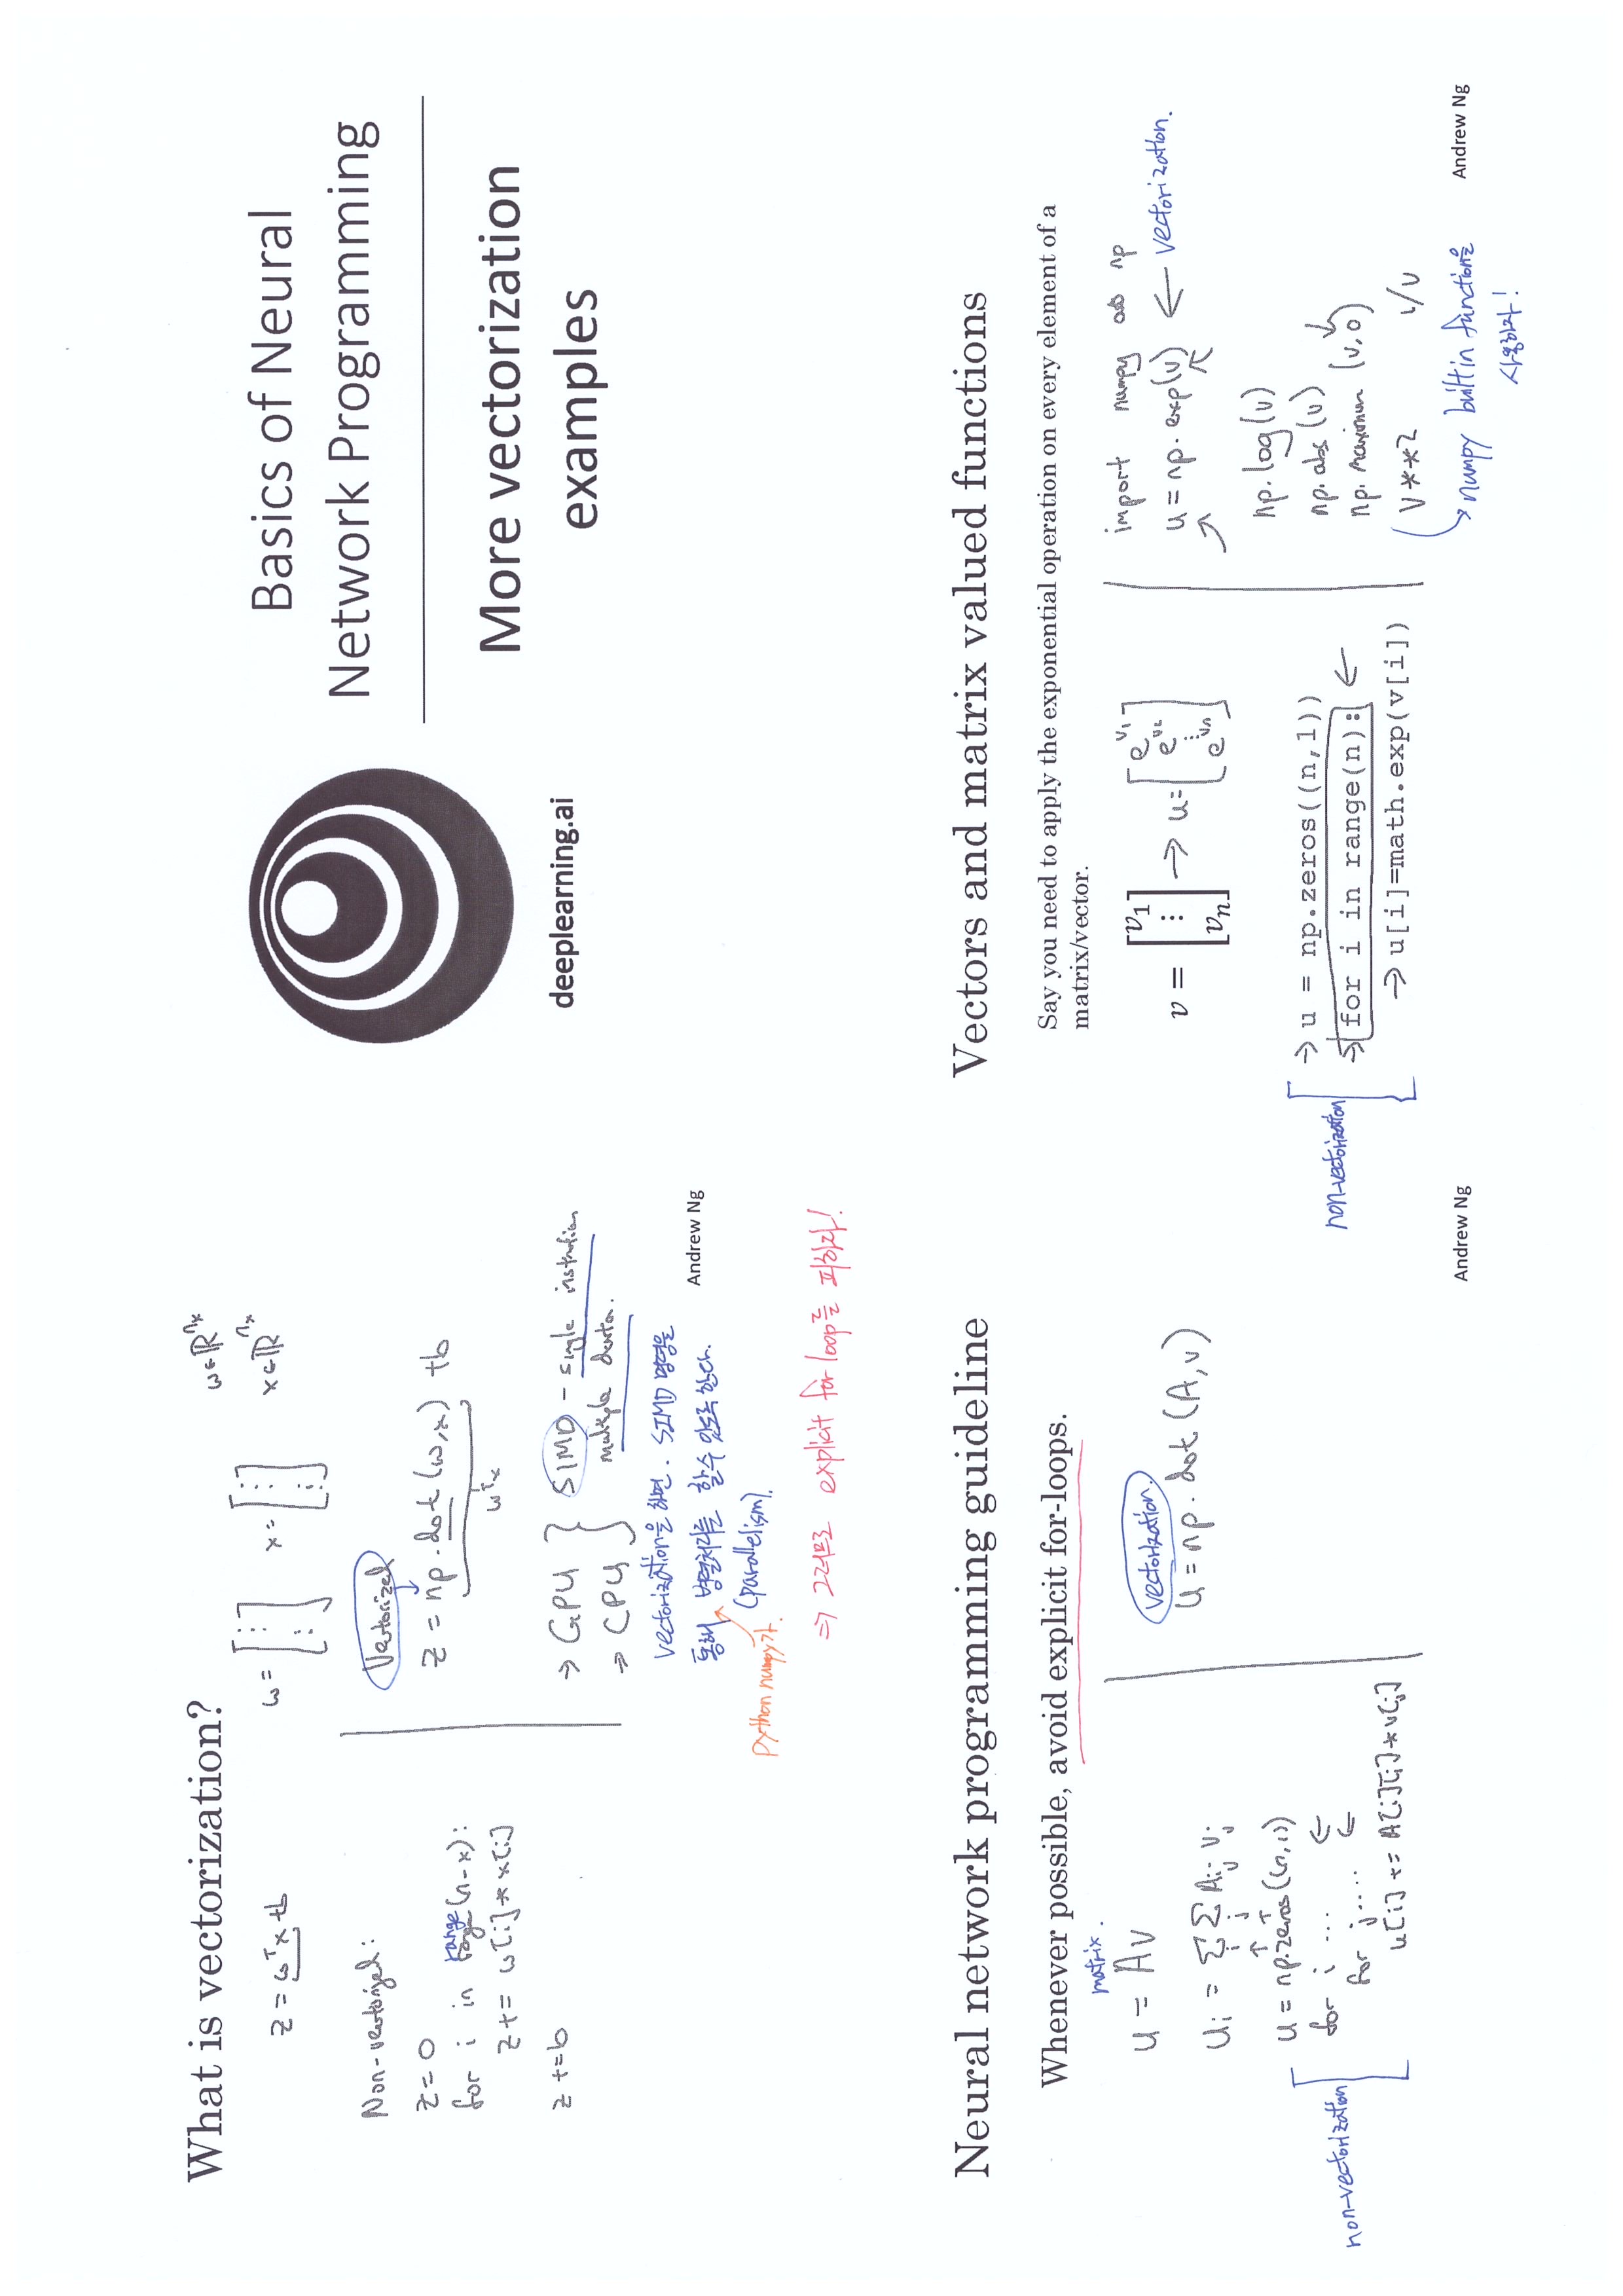 What is vectorization?
z = wᵀx + b
w = [⋮ ⋮]
x = [⋮ ⋮]
w ∈ ℝⁿˣ
x ∈ ℝⁿˣ
Non-vectorized:
z = 0
for i in range(n-x):
range
z += w[i] * x[i]
z += b
Vectorized
z = np.dot(w,x) + b
wᵀx
→ GPU
→ CPU
SIMD - single instruction
multiple data.
vectorization을 하면. SIMD 명령을
통해 병렬처리를 할수 있도록 한다.
(parallelism).
python numpy가.
⇒ 그러므로 explicit for loop를 피하라!
Andrew Ng
deeplearning.ai
Basics of Neural
Network Programming
More vectorization
examples
Neural network programming guideline
Whenever possible, avoid explicit for-loops.
matrix.
u = Av
uᵢ = Σᵢ Σⱼ Aᵢⱼ vⱼ
u = np.zeros((n,1))
for i ... ←
for j .... ←
u[i] += A[i][j] * v[j]
non-vectorization
vectorization.
u = np.dot(A,v)
Andrew Ng
Vectors and matrix valued functions
Say you need to apply the exponential operation on every element of a
matrix/vector.
v = [v₁ ⋮ vₙ] → u = [e^v₁ e^v₂ ⋮ e^vₙ]
non-vectorization
→ u = np.zeros((n,1))
→ for i in range(n): ←
→ u[i]=math.exp(v[i])
import numpy as np
u = np.exp(v) ← vectorization.
np.log(v)
np.abs(v)
np.maximum(v,0)
v**2 1/v
numpy built in function을
사용하자!
Andrew Ng